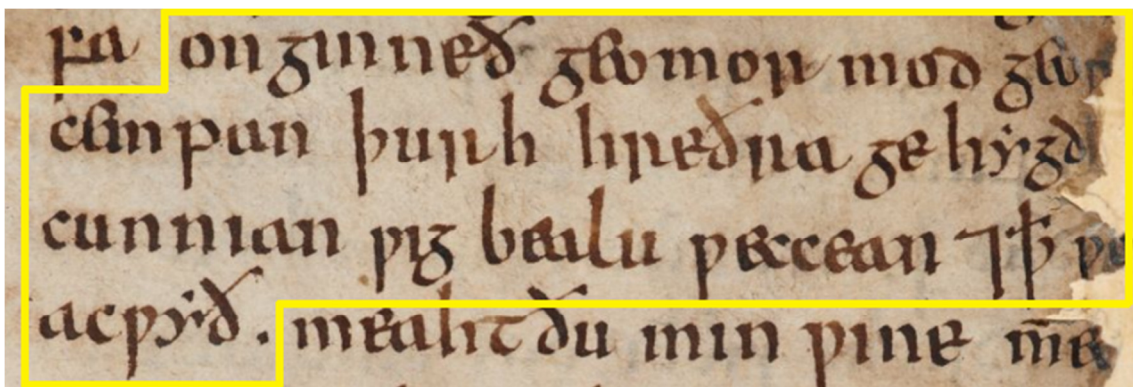 fa on ginneð geomor mod geo
cempan þurh hreðra ge hygd
cunnian ƿig bealu ƿeccean ⁊ꝥ ƿo
acƿyð. meaht ðu min ƿine me